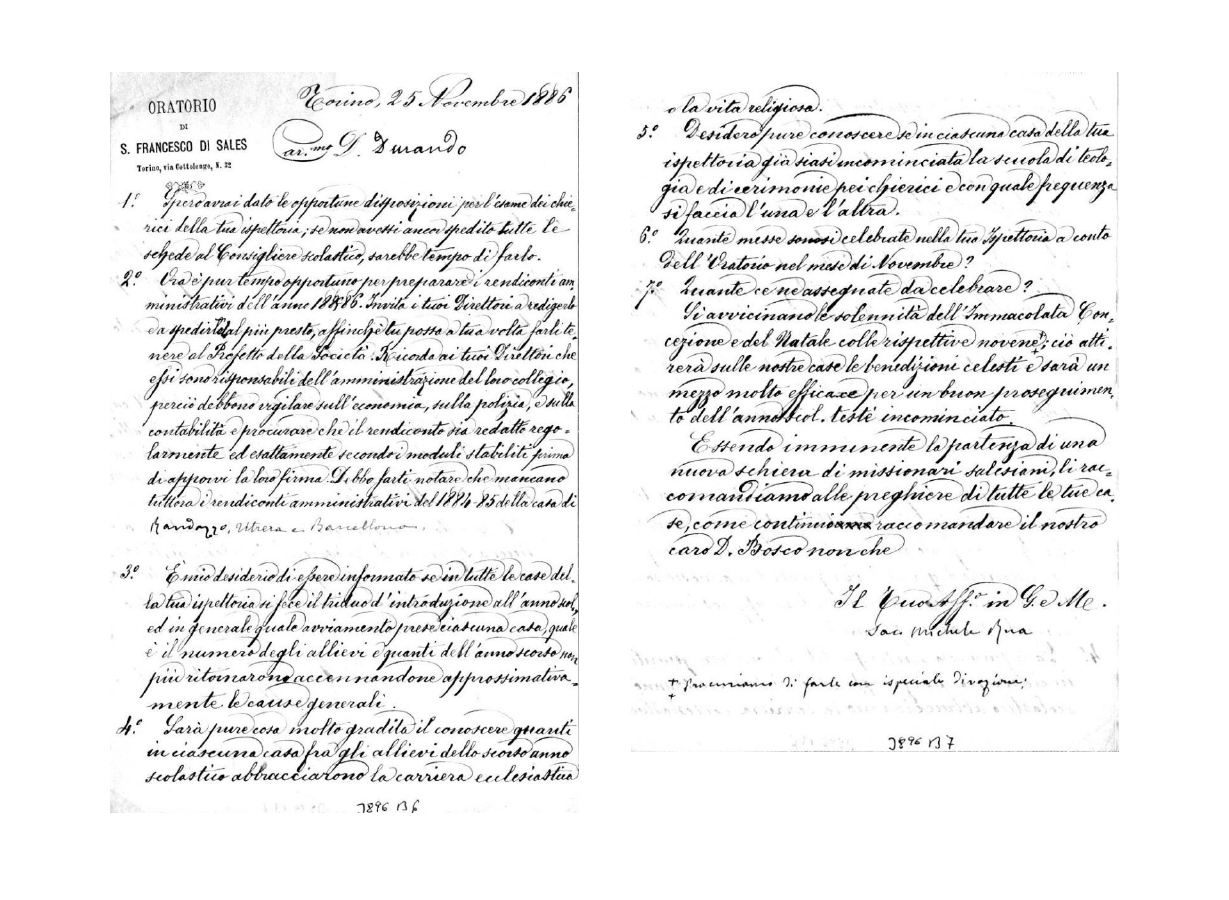 ORATORIO
DI
S. FRANCESCO DI SALES
Torino, via Cottolengo, N. 32
Torino, 25 Novembre 1886
Car.mo D. Durando
1.° Spero avrai dato le opportune disposizioni per l'esame dei chie-
rici della tua ispettoria; se non avessi ancor spedito tutte le
schede al Consigliere scolastico, sarebbe tempo di farlo.
2.° Ora è pur tempo opportuno per preparare i rendiconti am
ministrativi dell'anno 1885-86. Invita i tuoi Direttori a redigerlo
e a spedirtelo al più presto, affinché tu possa a tua volta farli te-
nere al Prefetto della Società. Ricorda ai tuoi Direttori che
essi sono risponsabili dell'amministrazione del loro collegio,
perciò debbono vigilare sull'economia, sulla polizia, e sulla
contabilità e procurare che il rendiconto sia redatto rego-
larmente ed esattamente secondo i moduli stabiliti prima
di apporvi la loro firma. Debbo farti notare che mancano
tuttora i rendiconti amministrativi del 1884-85 della casa di
Randazzo, Utrera e Barcellona.
3.° È mio desiderio di essere informato se in tutte le case del-
la tua ispettoria si fece il triduo d'introduzione all'anno scol,
ed in generale quale avviamento prese ciascuna casa, quale
è il numero degli allievi e quanti dell'anno scorso non
più ritornarono accennandone approssimativa-
mente le cause generali.
4.° Sarà pure cosa molto gradita il conoscere quanti
in ciascuna casa fra gli allievi dello scorso anno
scolastico abbracciarono la carriera ecclesiastica
J896 B6
o la vita religiosa.
5.° Desidero pure conoscere se in ciascuna casa della tua
ispettoria già siasi incominciata la scuola di teolo-
gia e di cerimonie pei chierici e con quale frequenza
si faccia l'una e l'altra.
6.° Quante messe sonosi celebrate nella tua Ispettoria a conto
dell'Oratorio nel mese di Novembre?
7.° Quante ce ne assegnate da celebrare?
Si avvicinano le solennità dell'Immacolata Con-
cezione e del Natale colle rispettive novene†; ciò atti-
rerà sulle nostre case le benedizioni celesti e sarà un
mezzo molto efficace per un buon proseguimen-
to dell'anno scol. testé incominciato.
Essendo imminente la partenza di una
nuova schiera di missionari salesiani, li rac-
comandiamo alle preghiere di tutte le tue ca-
se, come continuo raccomandare il nostro
caro D. Bosco non che
Il Tuo Aff.° in G. e M.
Sac. Michele Rua
† Procuriamo di farle con ispeciale divozione;
J896 B7